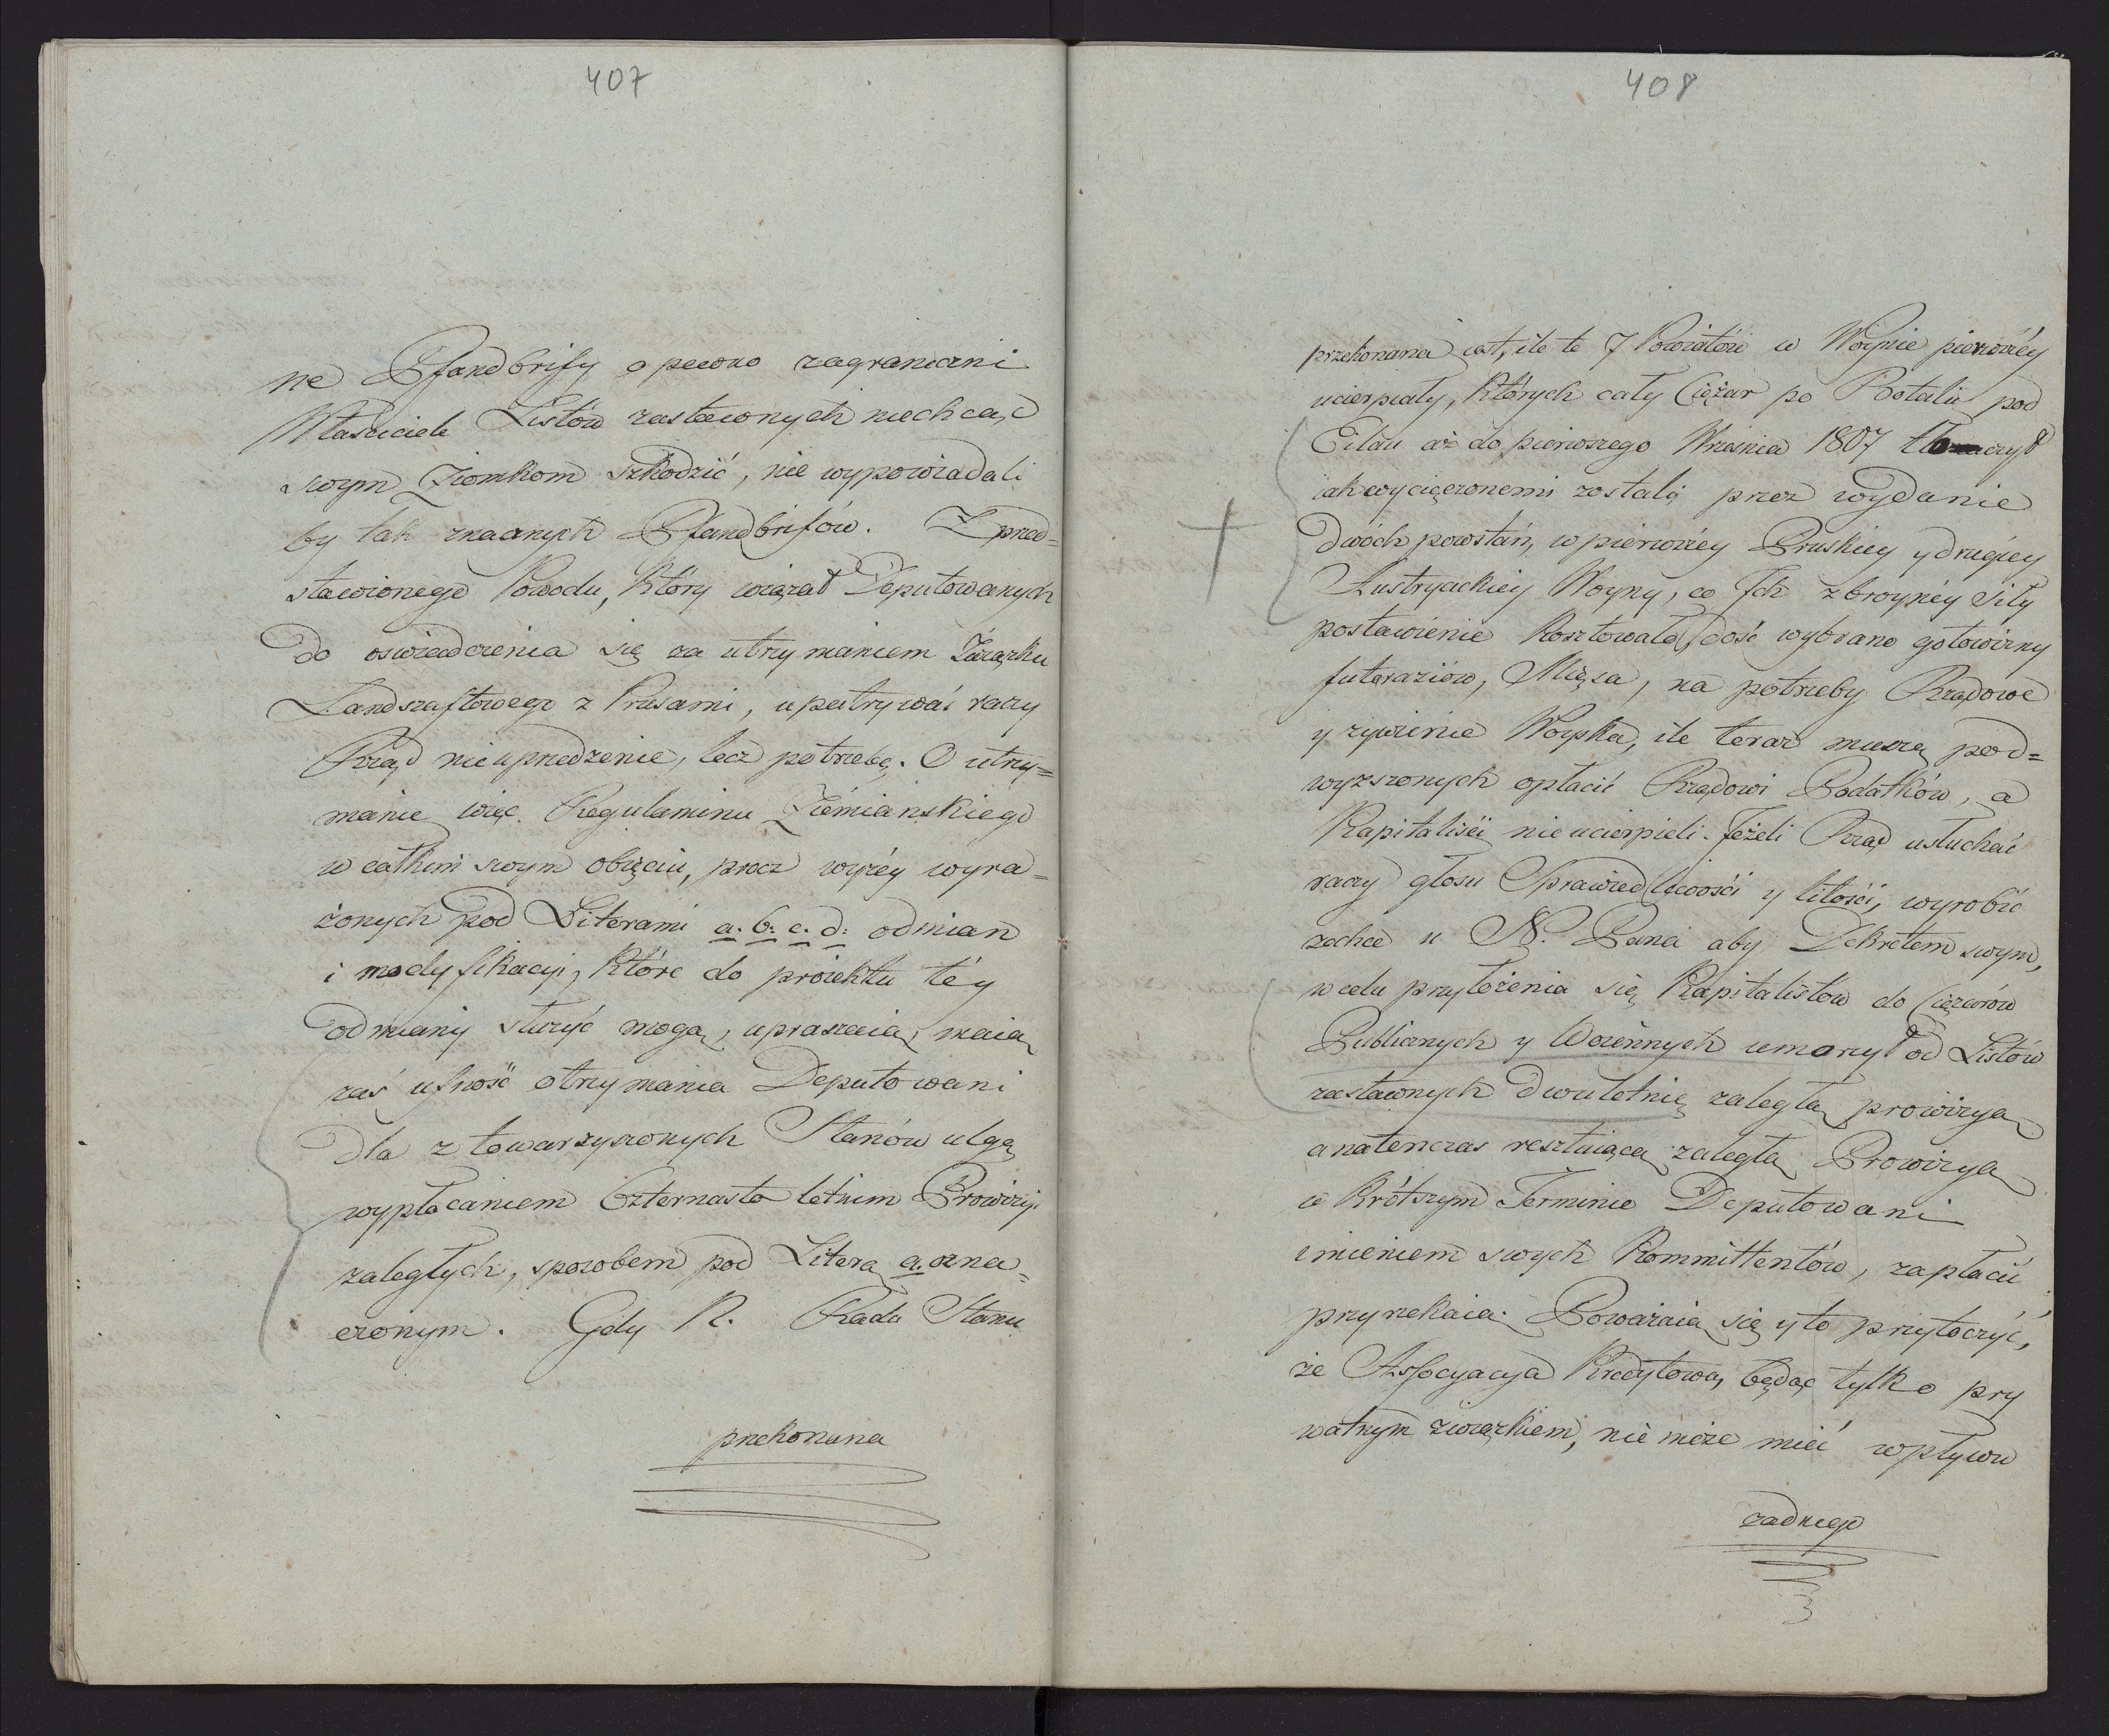 407
ne Pfandbrify o pewno zagraniczni
Właściciele Listów zastawionych niechcąc
swym Ziomkom szkodzić, nie wypowiadali
by tak znacznych Pfandbrifów. Z przed=
stawionego Powodu, który wiązał Deputowanych
do oswiadczenia się za utrzymaniem Związku
Landszaftowego z Prusami, upatrywać raczy
Rząd nieuprzedzenie, lecz potrzebę. O utrzy=
manie więc Regulaminu Ziemianskiego
w całkim swym obięciu, procz wyżéy wyra=
żonych pod Literami a. b: c. d: odmian
i modyfikacyi, które do proiektu téy
odmiany służyć mogą, upraszaią, maią
zaś ufność otrzymania Deputowani
dla ztowarzyszonych Stanów ulgę
wypłacaniem Czternasto letnim Prowizyi
zaległych, sposobem pod Literą a. ozna=
czonym. Gdy R. Rada Stanu
przekonana
408
przekonana iest, ile te 7 Powiatów w Woynie pierwszéy
ucierpiały, których cały Ciężar po Batalii pod
Eilau aż do pierwszego Września 1807 tłomaczył
iak wycięczonemi zostali przez wydanie
dwóch powstań, w pierwszéy Pruskiey y drugiey
Austryackiey Woyny, co Ich zbroynéy Siły
postawienie kosztowało, dość wybrano gotowizny
furazów, Mięsa, na potrzeby Rządowe
y zywienie Woyska, ile teraz muszą pod=
wyzszonych opłacić Rządowi Podatków, a
Kapitaliści nie ucierpieli. Jeżeli Rząd usłuchać
raczy głosu Sprawiedliwości y litości, wyrobić
zechce u N. Pana aby Dekretem swym,
w celu przyłożenia się Kapitalistow do Ciężarów
Publicznych y Woiennych umorzył od Listów
zastawnych dwuletnią zaległą prowizyą
a natenczas resztuiącą zaległą Prowizyą
w krótszym Terminie Deputowani
imieniem swych Kommittentów, zapłacić
przyrzekaią. Poważaią się y to przytoczyć,
że Assocyacya Kredytowa, będąc tylko pry
watnym związkiem, nie może mieć wpływu
żadnego